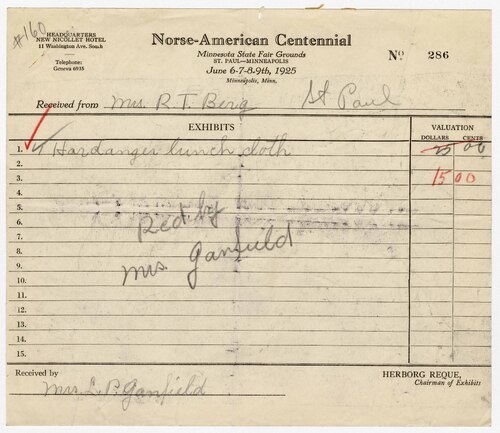 #160
HEADQUARTERS
NEW NICOLLET HOTEL
11 Washington Ave. South
Telephone:
Geneva 6935
Norse-American Centennial
Minnesota State Fair Grounds
ST. PAUL—MINNEAPOLIS
June 6-7-8-9th, 1925
Minneapolis, Minn.
No 286
Received from Mrs. R. T. Berg St Paul
EXHIBITS
VALUATION
DOLLARS CENTS
1. Hardanger lunch cloth 25 00
2.
3. 15 00
4.
5.
6. Red by
7.
8. Mrs Ganfield
9.
10.
11.
12.
13.
14.
15.
Received by
Mrs. L. P. Ganfield
HERBORG REQUE,
Chairman of Exhibits